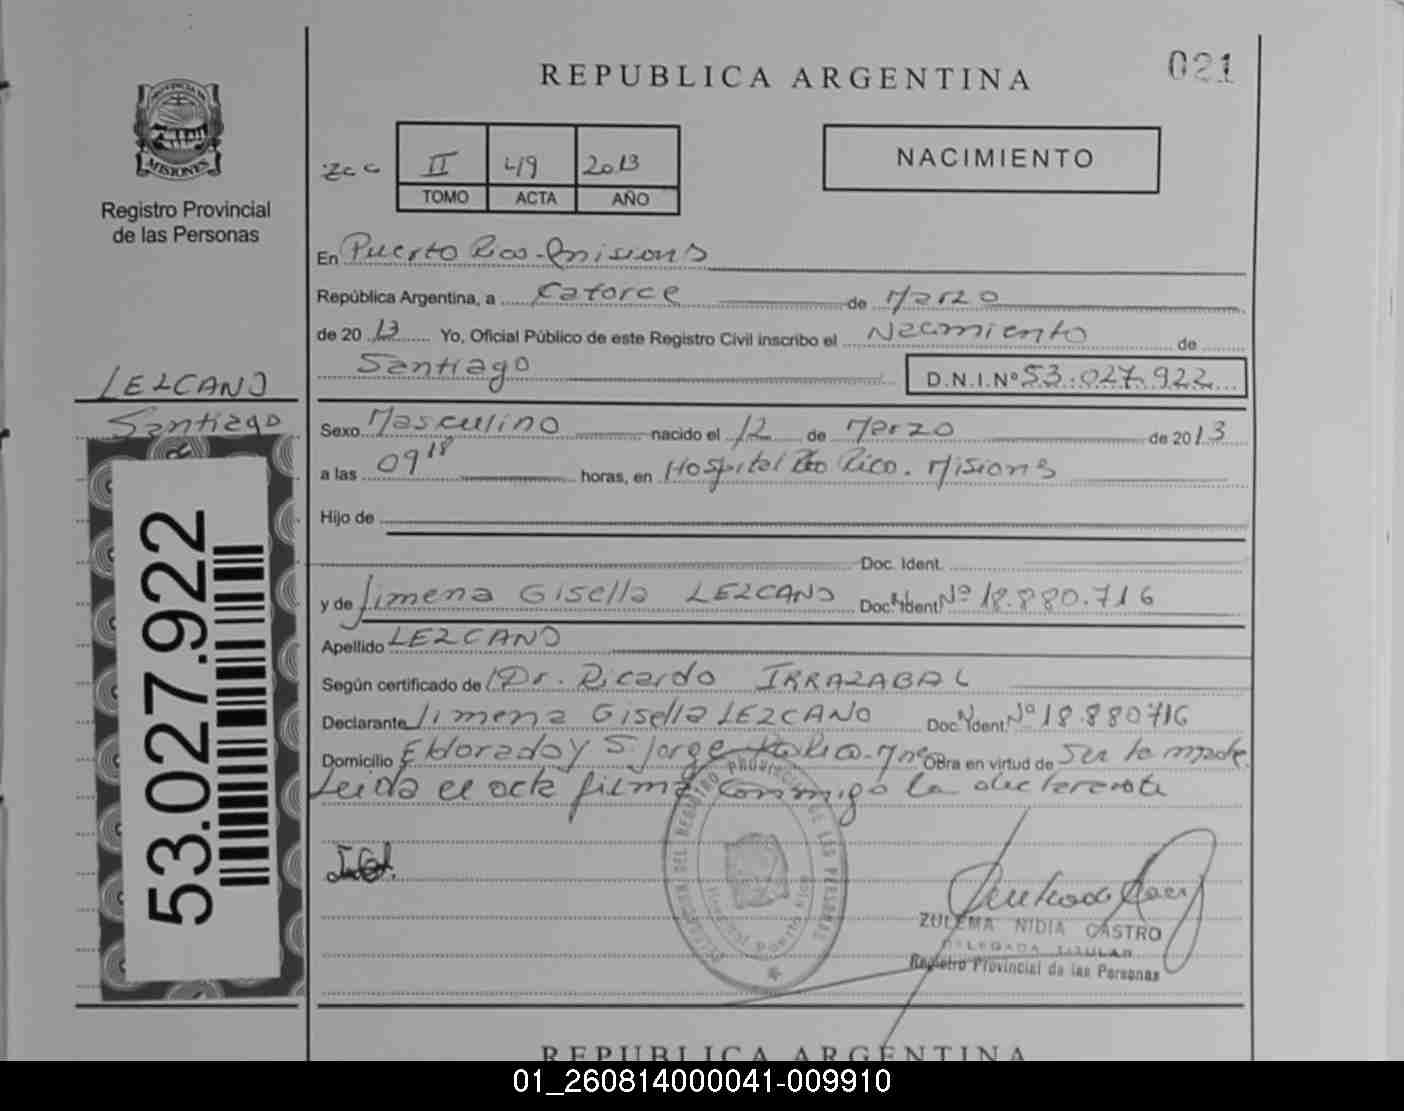 REPUBLICA ARGENTINA
021
PROVINCIA DE
MISIONES
Registro Provincial
de las Personas
II 49 2013
TOMO ACTA AÑO
NACIMIENTO
En Puerto Rico - Misiones
República Argentina, a Catorce de Marzo
de 2013 Yo, Oficial Público de este Registro Civil inscribo el Nacimiento de
Santiago D.N.I.Nº 53.027.922
LEZCANO
Santiago
Sexo Masculino nacido el 12 de Marzo de 2013
a las 09 18 horas, en Hospital Pto Rico. Misiones
Hijo de
Doc. Ident.
y de Jimena Gisella LEZCANO Doc. Ident. Nº 18.880.716
Apellido LEZCANO
Según certificado de Dr. Ricardo IRRAZABAL
Declarante Jimena Gisella LEZCANO Doc. Ident. Nº 18.880716
Domicilio Eldorado y S. Jorge Pto Rico. Mnes Obra en virtud de Ser la madre
Leida el acta firma conmigo la declarante
53.027.922
DEL REGISTRO PROVINCIAL DE LAS PERSONAS
Hospital Puerto Rico
ZULEMA NIDIA CASTRO
DELEGADA TITULAR
Registro Provincial de las Personas
REPUBLICA ARGENTINA
01_260814000041-009910